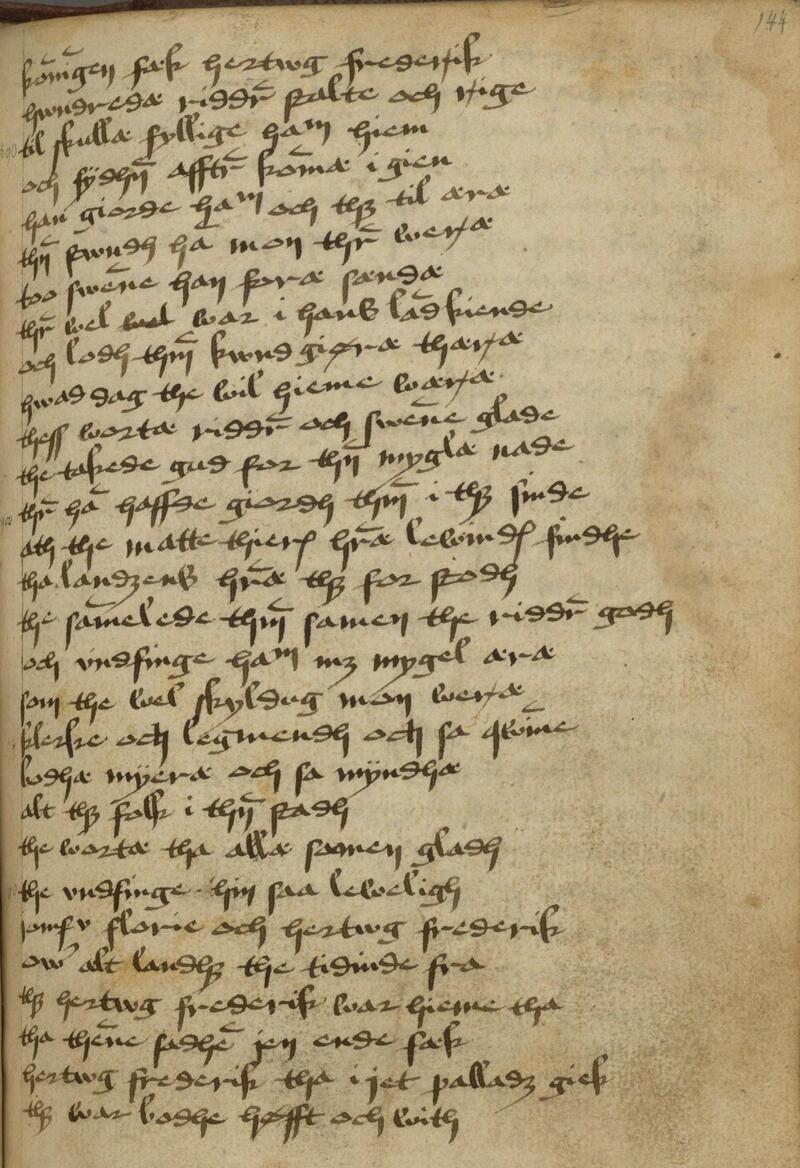 144
ko̅ni̅gen fæk hertwg frederik
hwndredæ riddr̅ stalte och rige
til skullæ fyllige ham hiem
och sydhn̅ afftr̅ ko̅mæ i gien
han giorde ham och thꝫ til æræ
thn̅ stwndh ha̅ mon thr̅ weræ
too swe̅ne han foræ sændæ
thr̅ wel wel war i hans la̅d kiende
och lodh thm̅ kwndgiøræ thæræ
hwad dag the wil hieme wæræ
thess wortæ riddr̅ och swe̅ne glade
the takede gud for thn̅ myglæ nade
thr̅ ha̅ haffde giordh thm̅ i thꝫ sinde
ath the matte thieræ hr̅æ lewindæ findhe
tha landzens hr̅æ thꝫ for stodh
the sa̅melede thm̅ samen the riddr̅ godh
och vndfinge ham mꝫ mygel æræ
som the wel skyldug mon weræ
klerke och legmendh och sa qwi̅ne
bodhæ myeræ och sa myndhæ
alt thꝫ folk i thn̅ stadh
the wortæ tha allæ samen gladh
the vndfinge hin saa leweligh
jomfv florie och hertwg frederik
ow̅ alt landhꝫ the tidinde fra
thꝫ hertwg frederik war hieme tha
tha the̅ne fadhe̅ jen ende fæk
hertwg frederik tha i jet palladz giek
thꝫ war bodhe høfft och with